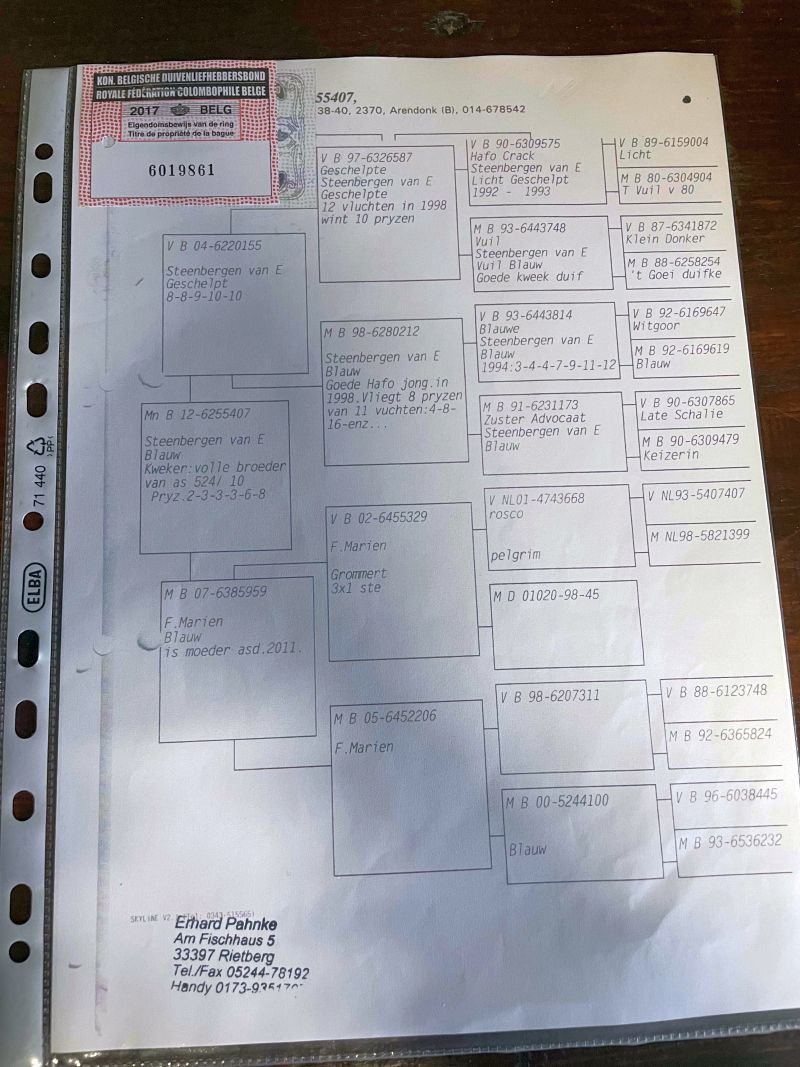 KON. BELGISCHE DUIVENLIEFHEBBERSBOND
ROYALE FÉDÉRATION COLOMBOPHILE BELGE
2017 BELG
Eigendomsbewijs van de ring
Titre de propriété de la bague
6019861
55407,
38-40, 2370, Arendonk (B), 014-678542
V B 97-6326587
Geschelpte
Steenbergen van E
Geschelpte
12 vluchten in 1998
wint 10 pryzen
V B 90-6309575
Hafo Crack
Steenbergen van E
Licht Geschelpt
1992 - 1993
V B 89-6159004
Licht
M B 80-6304904
T Vuil v 80
M B 93-6443748
Vuil
Steenbergen van E
Vuil Blauw
Goede kweek duif
V B 87-6341872
Klein Donker
M B 88-6258254
't Goei duifke
V B 04-6220155
Steenbergen van E
Geschelpt
8-8-9-10-10
M B 98-6280212
Steenbergen van E
Blauw
Goede Hafo jong.in
1998.Vliegt 8 pryzen
van 11 vuchten:4-8-
16-enz...
V B 93-6443814
Blauwe
Steenbergen van E
Blauw
1994:3-4-4-7-9-11-12
V B 92-6169647
Witgoor
M B 92-6169619
Blauw
M B 91-6231173
Zuster Advocaat
Steenbergen van E
Blauw
V B 90-6307865
Late Schalie
M B 90-6309479
Keizerin
Mn B 12-6255407
Steenbergen van E
Blauw
Kweker:volle broeder
van as 524/ 10
Pryz.2-3-3-3-6-8
V B 02-6455329
F.Marien
Grommert
3x1 ste
V NL01-4743668
rosco
pelgrim
V NL93-5407407
M NL98-5821399
M D 01020-98-45
M B 07-6385959
F.Marien
Blauw
is moeder asd.2011.
M B 05-6452206
F.Marien
V B 98-6207311
V B 88-6123748
M B 92-6365824
M B 00-5244100
Blauw
V B 96-6038445
M B 93-6536232
SKYLINE V2
Erhard Pahnke
Am Fischhaus 5
33397 Rietberg
Tel./Fax 05244-78192
Handy
71 440
ELBA